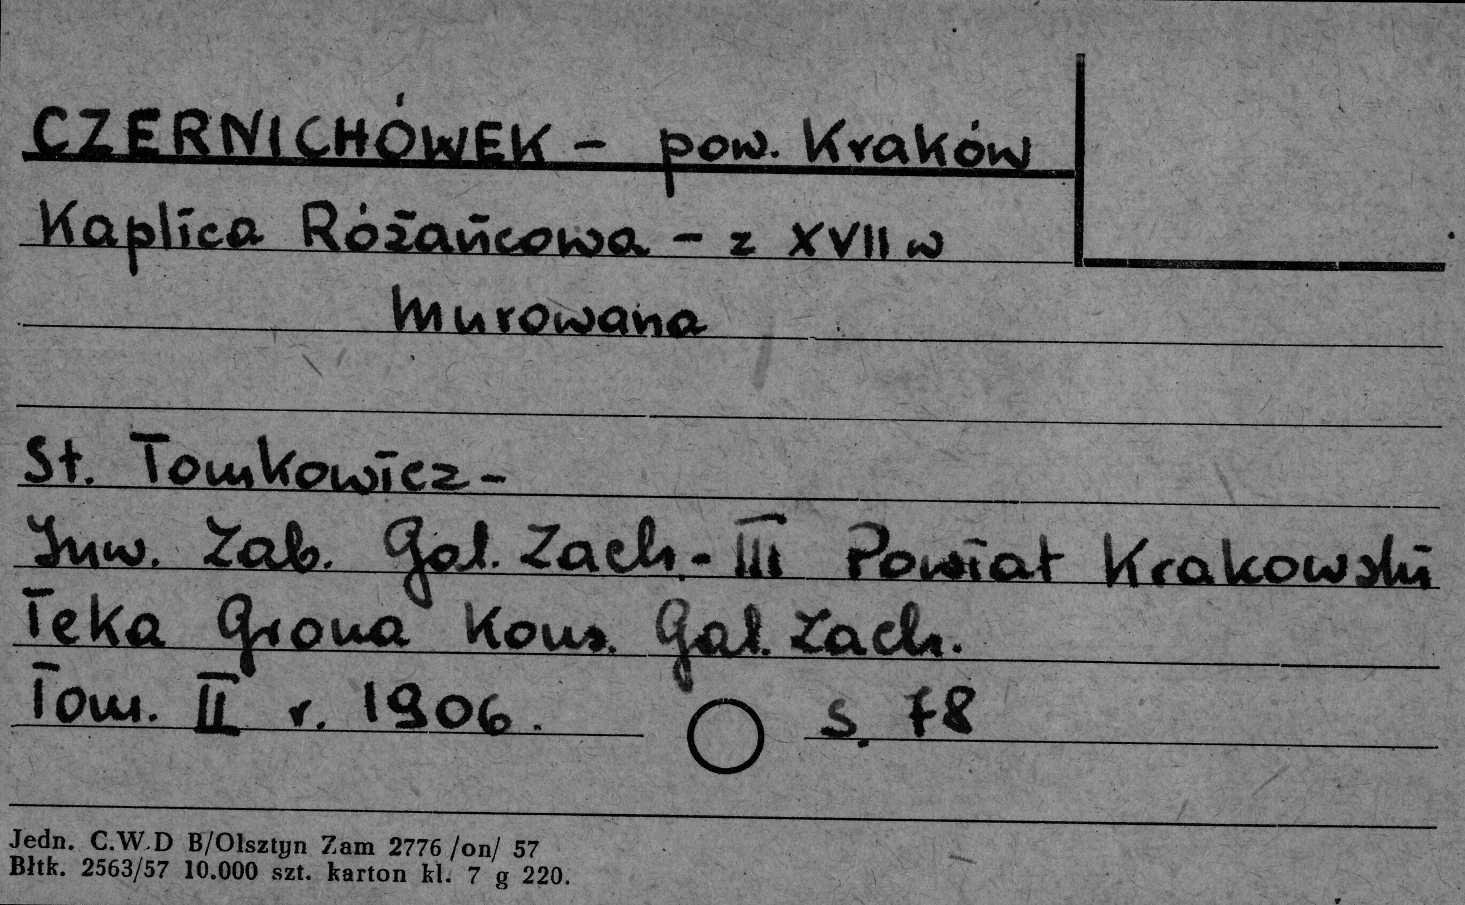 CZERNICHÓWEK – pow. Kraków
Kaplica Różańcowa – z XVII w
Murowana
St. Tomkowicz –
Inw. Zab. Gal. Zach. - III Powiat Krakowski
Teka Grona Kons. Gal. Zach.
Tom. II r. 1906. s. 78
Jedn. C.W.D B/Olsztyn Zam 2776 /on/ 57
Błtk. 2563/57 10.000 szt. karton kl. 7 g 220.